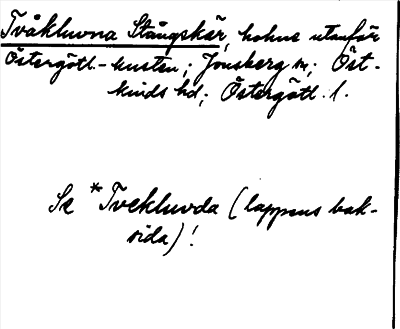 Tvåkluvna Stångskär, holme utanför
Östergötl.-kusten; Jonsberg sn; Öst-
kinds hd; Östergötl. l.
Se *Tvekluvda (lappens bak-
sida)!